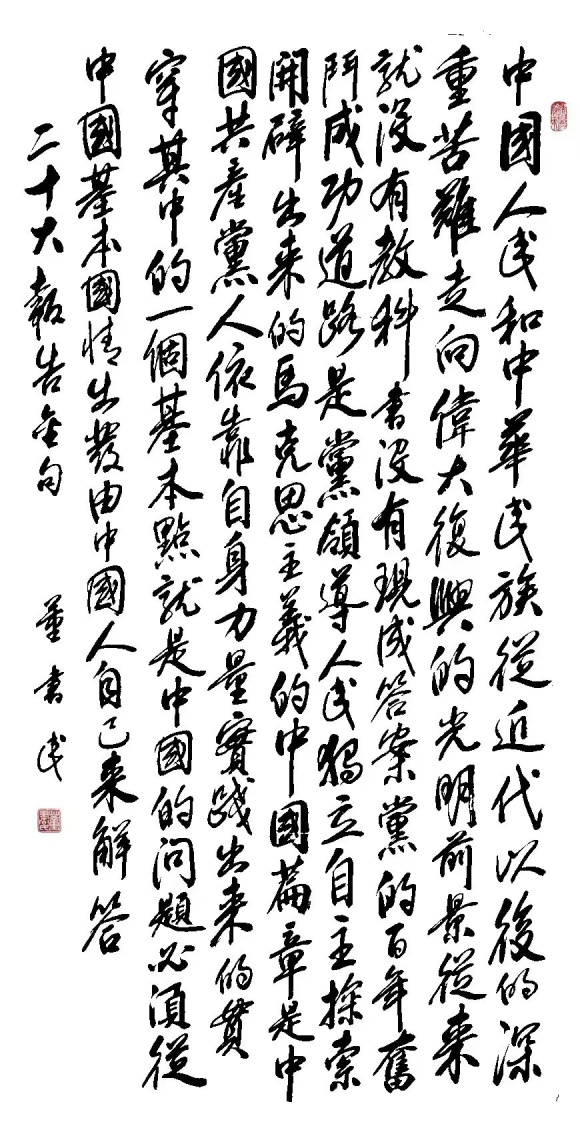 中國人民和中華民族從近代以後的深
重苦難走向偉大復興的光明前景從來
就没有教科書没有現成答案黨的百年奮
鬥成功道路是黨領導人民獨立自主探索
開辟出来的馬克思主義的中國篇章是中
國共産黨人依靠自身力量實踐出来的貫
穿其中的一個基本點就是中國的問題必須從
中國基本國情出發由中國人自己来解答
二十大報告金句
董書民